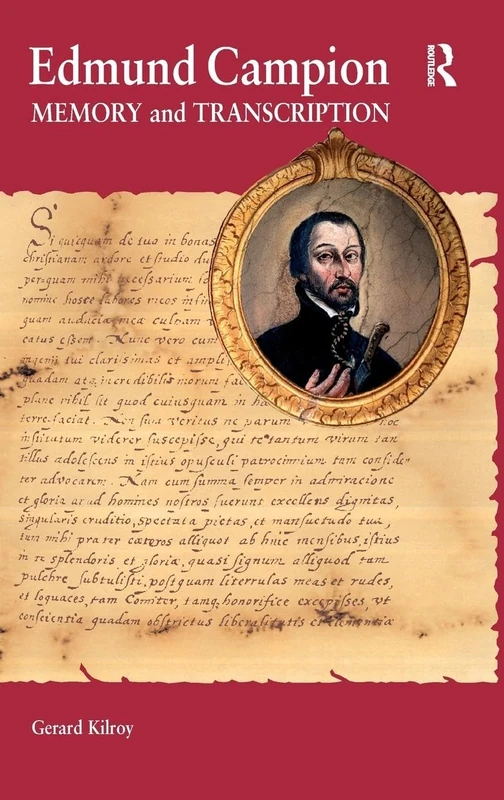 Edmund Campion
ROUTLEDGE
MEMORY and TRANSCRIPTION
Si quicquam de tuo in bonas
christianam ardore et studio
perquam mihi necessarium
nomine hosce labores meos
quam audacia mea culpam
catus essem. Nunc vero cum
ingenii tui clarissimas et
quadam atq incredibili morum
plane nihil sit quod cuiusquam in
terre faciat. Non sum veritus ne parum
institutum viderer suscepisse, qui te tantum virum
tillus adolescens in istius opusculi patrocinium tam confide
ter advocarem. Nam cum summa semper in admiracione
et gloria apud homines nostros fuerunt excellens dignitas,
singularis eruditio, spectata pietas, et mansuetudo tua,
tum mihi præter cæteros alliquot ab hinc mensibus, istius
in te splendoris et gloriæ, quasi signum alliquod tam
pulchre subtulisti, postquam literrulas meas et rudes,
et loquaces, tam comiter, tamq honorifice excepisses, ut
conscientia quadam obstrictus liberalitatis et clementiæ
Gerard Kilroy